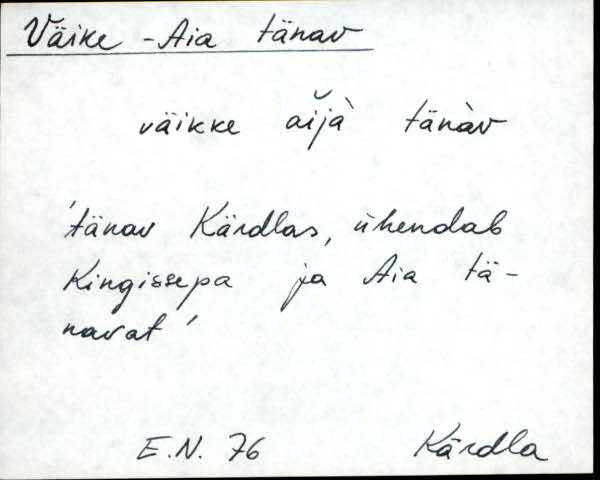 Väike-Aia tänav
väikke aĭjà tänàv
'tänav Kärdlas, ühendab
Kingissepa ja Aia tä-
navat'
E.N. 76 Kärdla